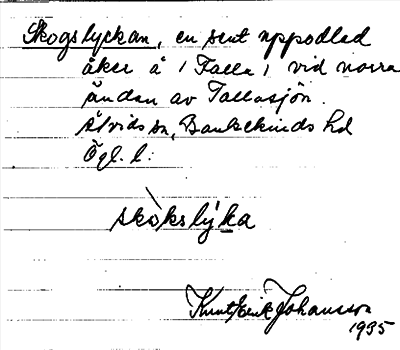 Skogslyckan, en sent uppodlad
åker å / Falla / vid norra
ändan av Tallasjön.
Åtvids sn, Bankekinds hd
Ögl. l:
skòkslýka
Knut Erik Johansson
1935